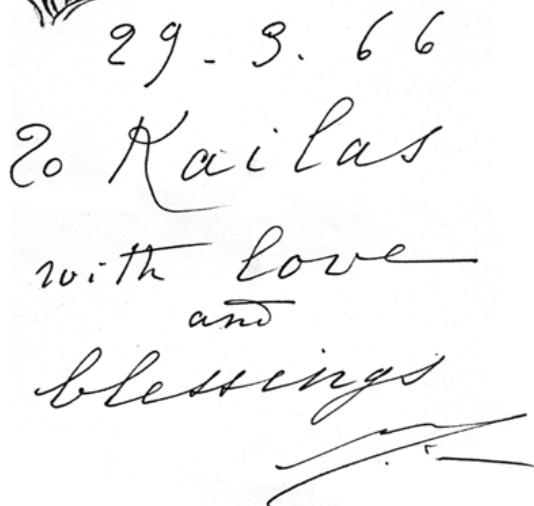 29-3.66
To Kailas
with love
and
blessings